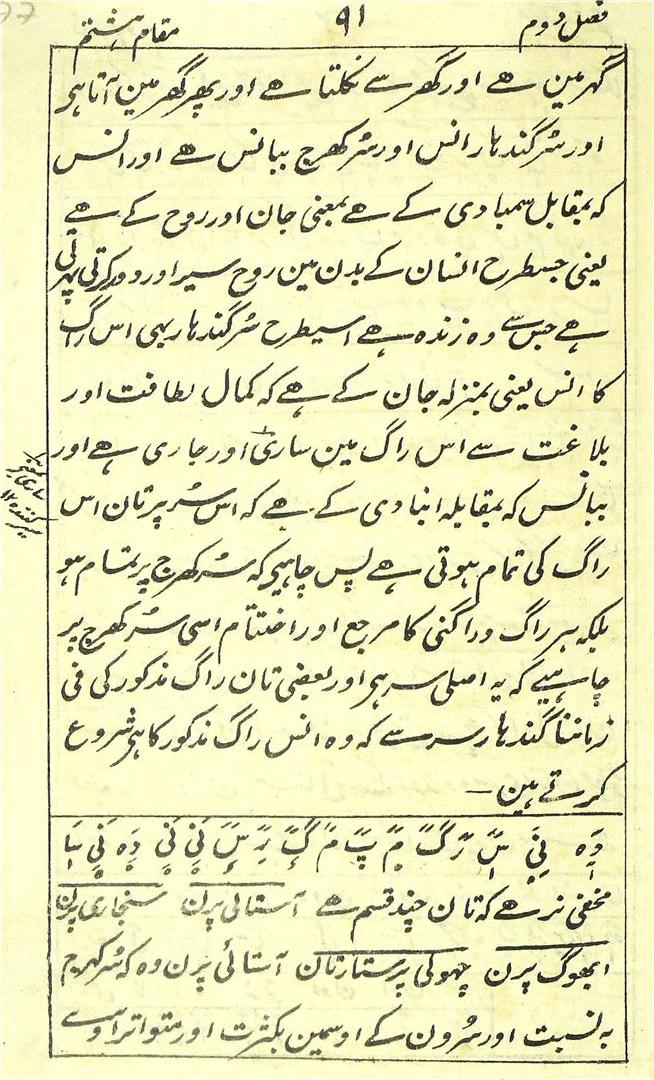 فصل دوم ۹۱ مقام ہشتم
گہر مین ھے اور گھر سے نکلتا ھے اور پھر گھر مین آتا ہی
اور سُر گندہار انس اور سُر کھرج ببانس ھے اور انس
کہ بمقابل سمبادی کے ھے بمعنی جان اور روح کے ھے
یعنی جسطرح انسان کے بدن مین روح سیر اور دور کرتی پہرتی
ھے جس سے وہ زندہ ھے اسیطرح سُر گندہار بہی اس راگ
کا انس یعنی بمنزلہ جان کے ھے کہ کمال لطافت اور
بلاغت سے اس راگ مین ساری اور جاری ھے اور
ببانس کہ بمقابلہ انبادی کے ھے کہ اس سُر پر تان اس
راگ کی تمام ہوتی ھے پس چاہیے کہ سُر کھرج پر تمام ہو
بلکہ ہر راگ و راگنی کا مرجع اور اختتام اسی سُر کھرج پر
چاہیے کہ یہ اصلی سر ہی اور بعضی تان راگ مذکور کی فی
زماننا گندہار سر سے کہ وہ انس راگ مذکور کا ہی شروع
کرتے ہین۔
دَہ نِیَ سَ رَ گَ مَ پَ مَ گَ رِ سَ نِیَ نِیَ دَہ نِیَ سَا
مخفی نرھے کہ تان چند قسم ھے آستائی پرن سنچاری پرن
ابھوگ پرن چہوکی پرستار تان آستائی پرن وہ کہ سُر کہرج
بہ نسبت اور سُرون کے اوسمین بکثرت اور متواتر اوسے